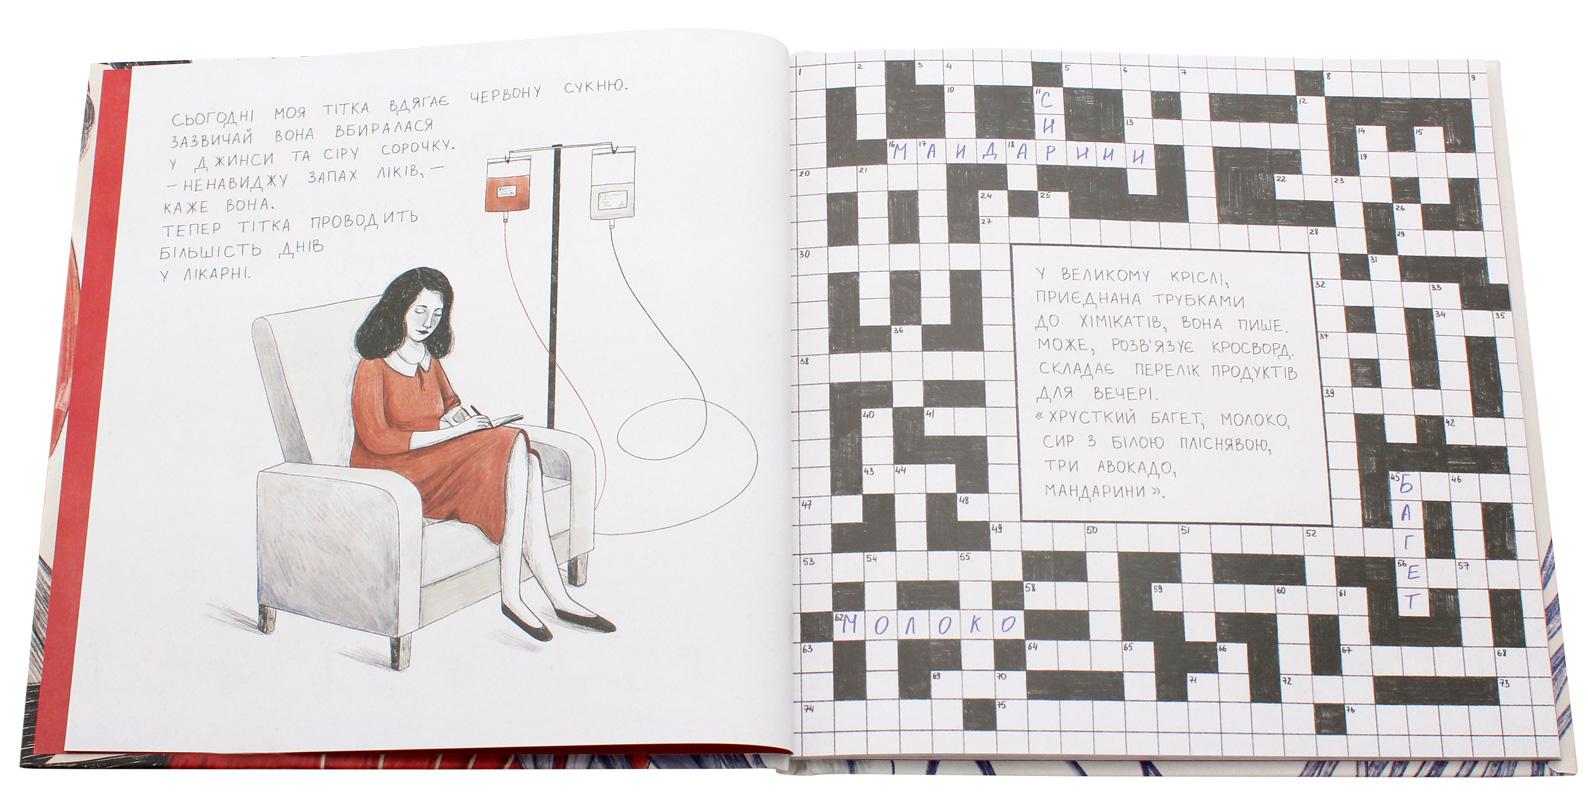 СЬОГОДНІ МОЯ ТІТКА ВДЯГАЄ ЧЕРВОНУ СУКНЮ.
ЗАЗВИЧАЙ ВОНА ВБИРАЛАСЯ
У ДЖИНСИ ТА СІРУ СОРОЧКУ.
– НЕНАВИДЖУ ЗАПАХ ЛІКІВ, –
КАЖЕ ВОНА.
ТЕПЕР ТІТКА ПРОВОДИТЬ
БІЛЬШІСТЬ ДНІВ
У ЛІКАРНІ.
1 2 3 4 5 6 7 8 9
10 11 12
С
13
И
14 15
16 17 18 19
МАНДАРИНИ
20 21 22 23
24 25 26
27 28 29
30 31
32 33
34 35
36 37
38
39
40 41 42
43 44 45 46
47 48
49 50 51 52
53 54 55 56 57
58 59 60 61
62
63 64 65 66 67 68
69 70 71 72 73
74 75 76
У ВЕЛИКОМУ КРІСЛІ,
ПРИЄДНАНА ТРУБКАМИ
ДО ХІМІКАТІВ, ВОНА ПИШЕ.
МОЖЕ, РОЗВ'ЯЗУЄ КРОСВОРД.
СКЛАДАЄ ПЕРЕЛІК ПРОДУКТІВ
ДЛЯ ВЕЧЕРІ.
«ХРУСТКИЙ БАГЕТ, МОЛОКО,
СИР З БІЛОЮ ПЛІСНЯВОЮ,
ТРИ АВОКАДО,
МАНДАРИНИ».
БАГЕТ
МОЛОКО